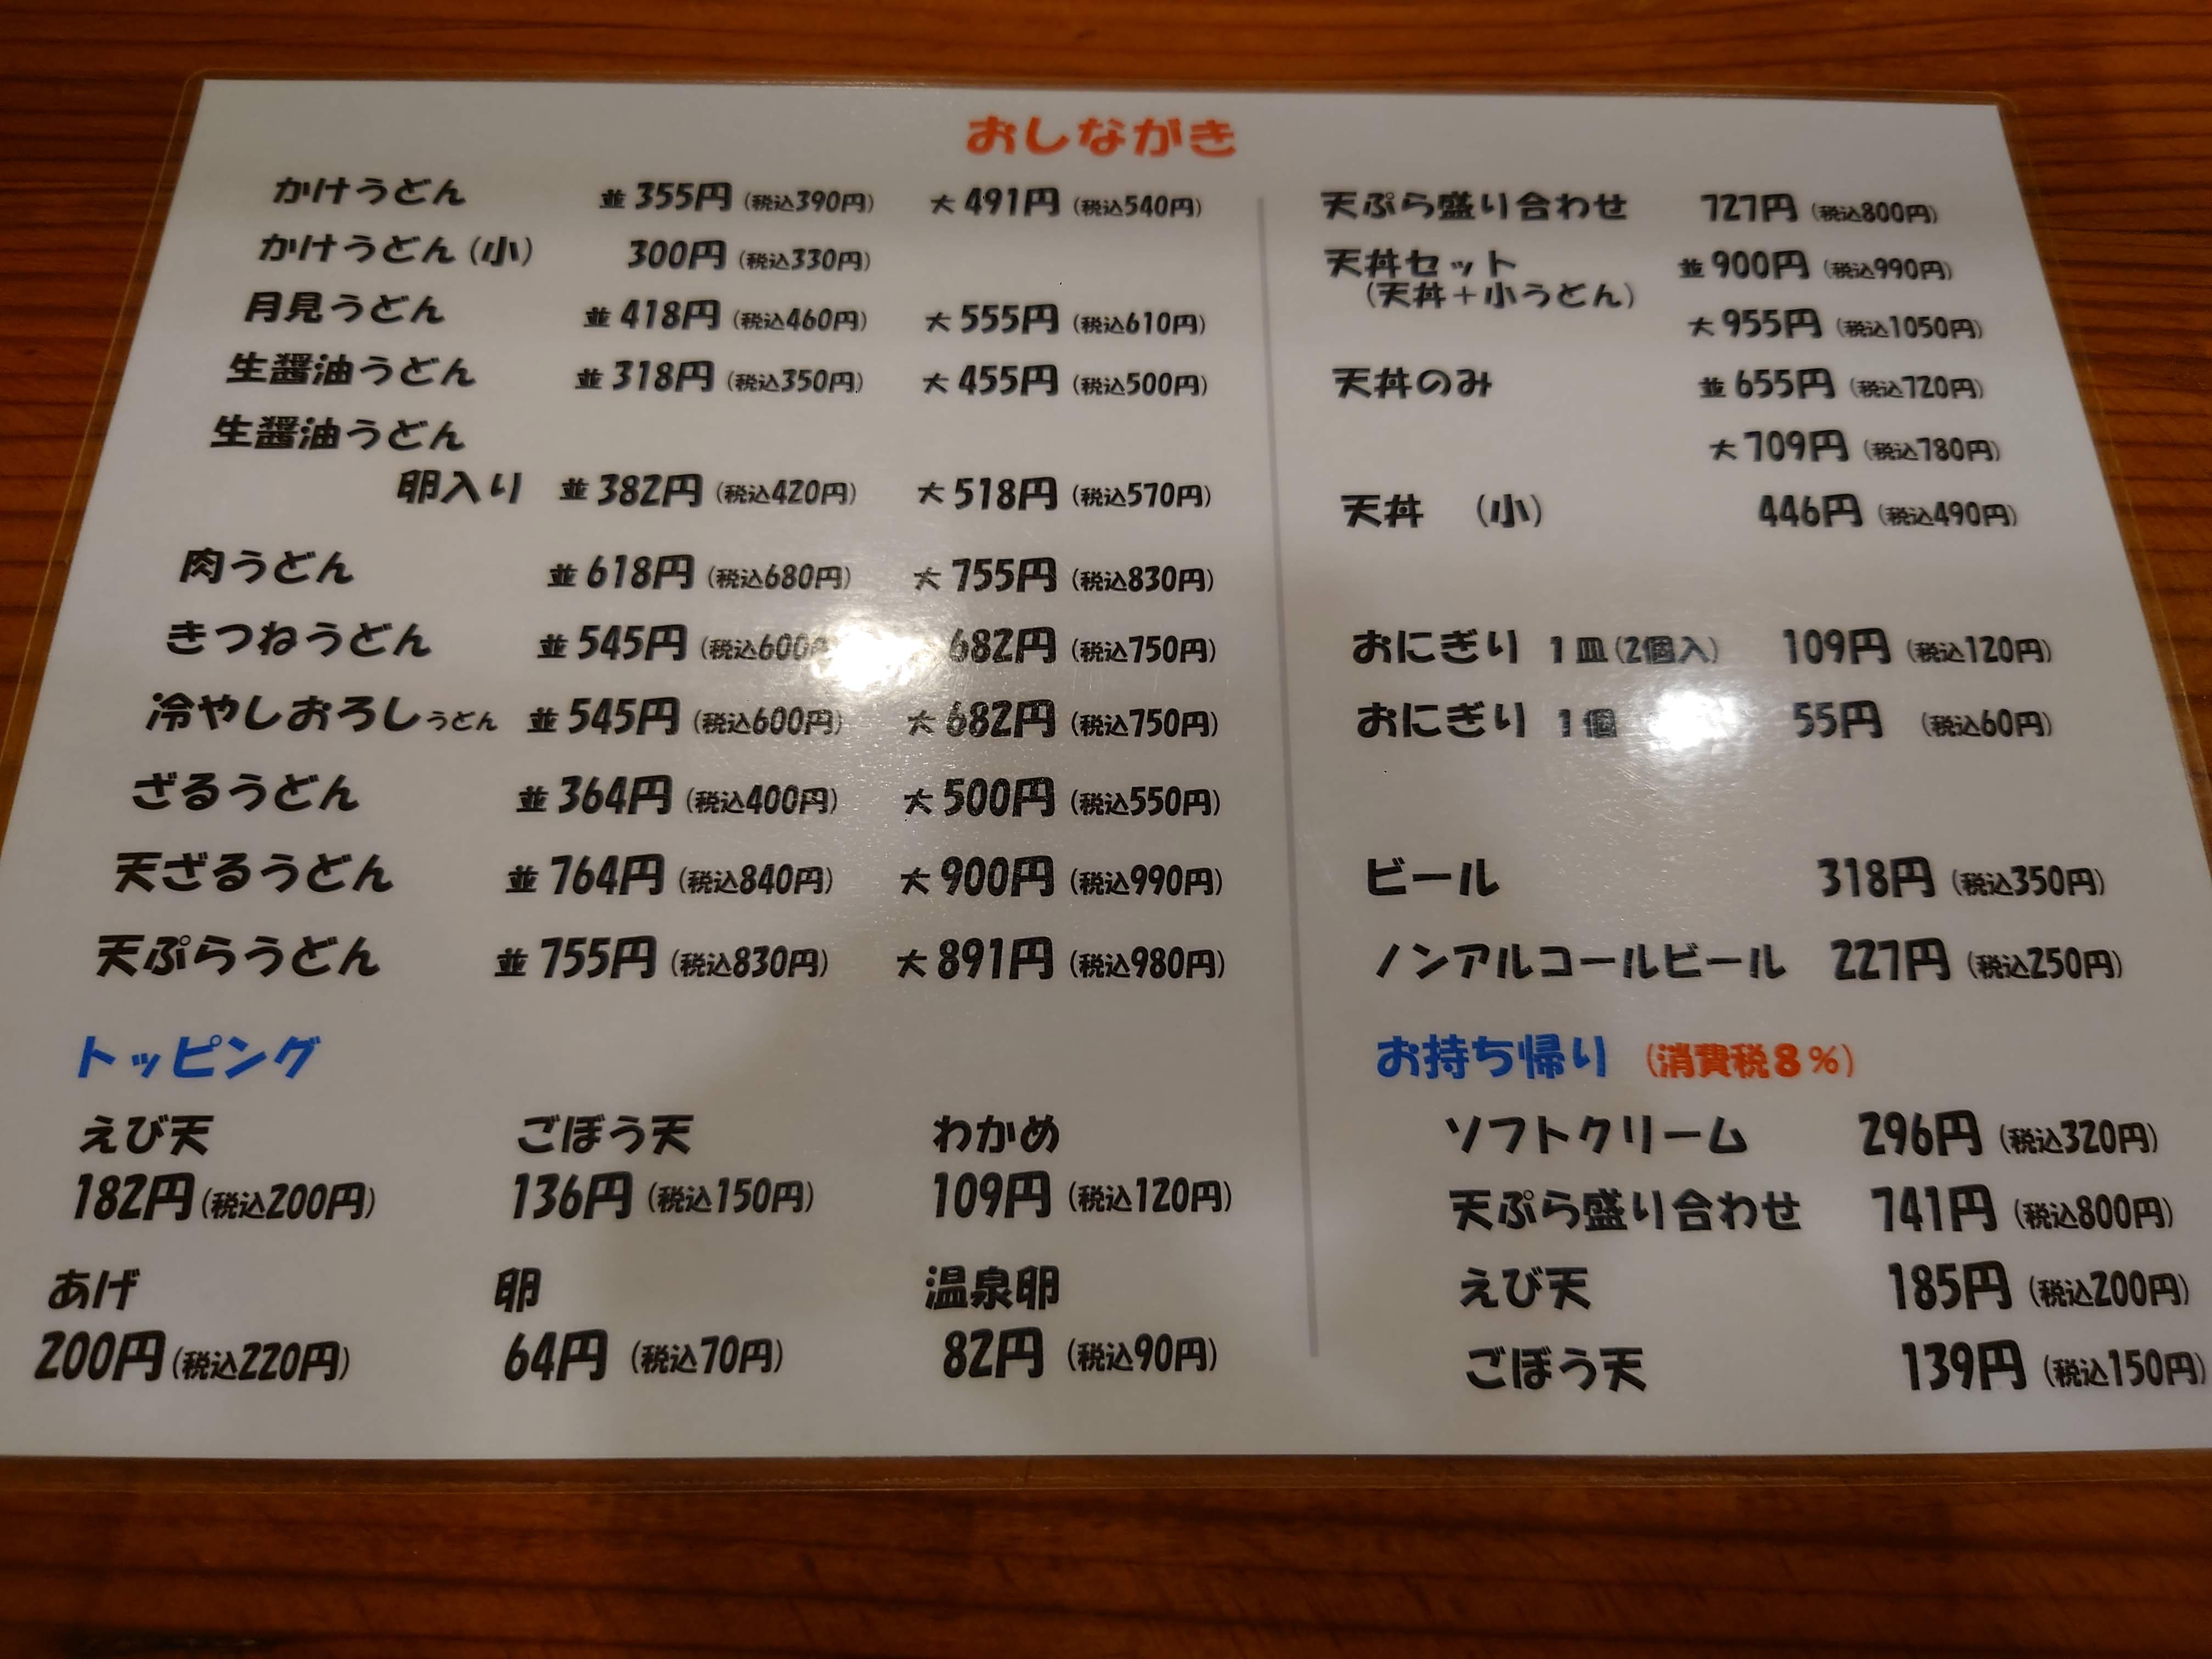 おしながき
かけうどん 並 355円 (税込390円) 大 491円 (税込540円)
かけうどん (小) 300円 (税込330円)
月見うどん 並 418円 (税込460円) 大 555円 (税込610円)
生醤油うどん 並 318円 (税込350円) 大 455円 (税込500円)
生醤油うどん
卵入り 並 382円 (税込420円) 大 518円 (税込570円)
肉うどん 並 618円 (税込680円) 大 755円 (税込830円)
きつねうどん 並 545円 (税込600 682円 (税込750円)
冷やしおろしうどん 並 545円 (税込600円) 大 682円 (税込750円)
ざるうどん 並 364円 (税込400円) 大 500円 (税込550円)
天ざるうどん 並 764円 (税込840円) 大 900円 (税込990円)
天ぷらうどん 並 755円 (税込830円) 大 891円 (税込980円)
トッピング
えび天 ごぼう天 わかめ
182円 (税込200円) 136円 (税込150円) 109円 (税込120円)
あげ 卵 温泉卵
200円 (税込220円) 64円 (税込70円) 82円 (税込90円)
天ぷら盛り合わせ 727円 (税込800円)
天丼セット 並 900円 (税込990円)
(天丼+小うどん)
大 955円 (税込1050円)
天丼のみ 並 655円 (税込720円)
大 709円 (税込780円)
天丼 (小) 446円 (税込490円)
おにぎり 1皿(2個入) 109円 (税込120円)
おにぎり 1個 55円 (税込60円)
ビール 318円 (税込350円)
ノンアルコールビール 227円 (税込250円)
お持ち帰り (消費税8%)
ソフトクリーム 296円 (税込320円)
天ぷら盛り合わせ 741円 (税込800円)
えび天 185円 (税込200円)
ごぼう天 139円 (税込150円)